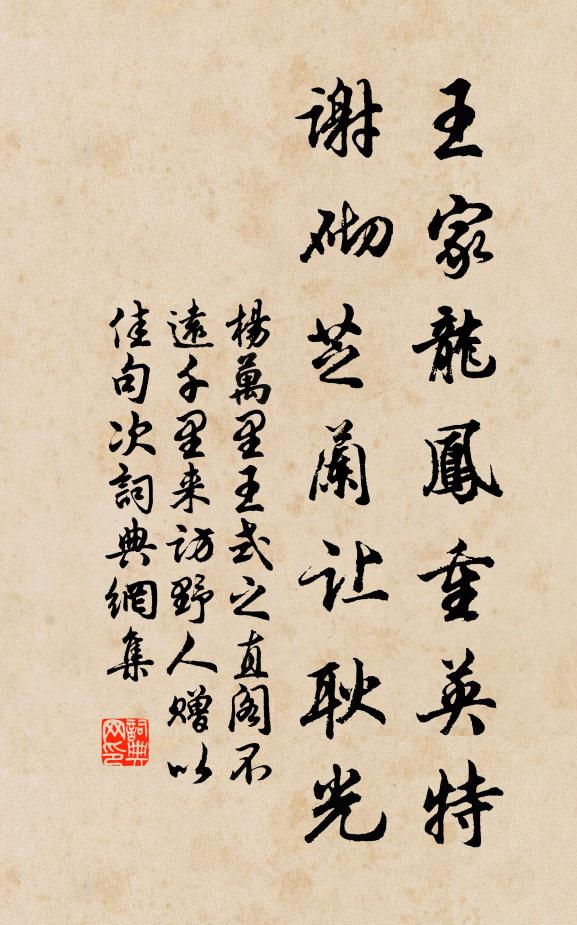 王家龍鳳重英特
谢砌芝蘭让耿光
楊萬里王式之直阁不
遠千里来访野人赠以
佳句次詞典網集
詞典
网印